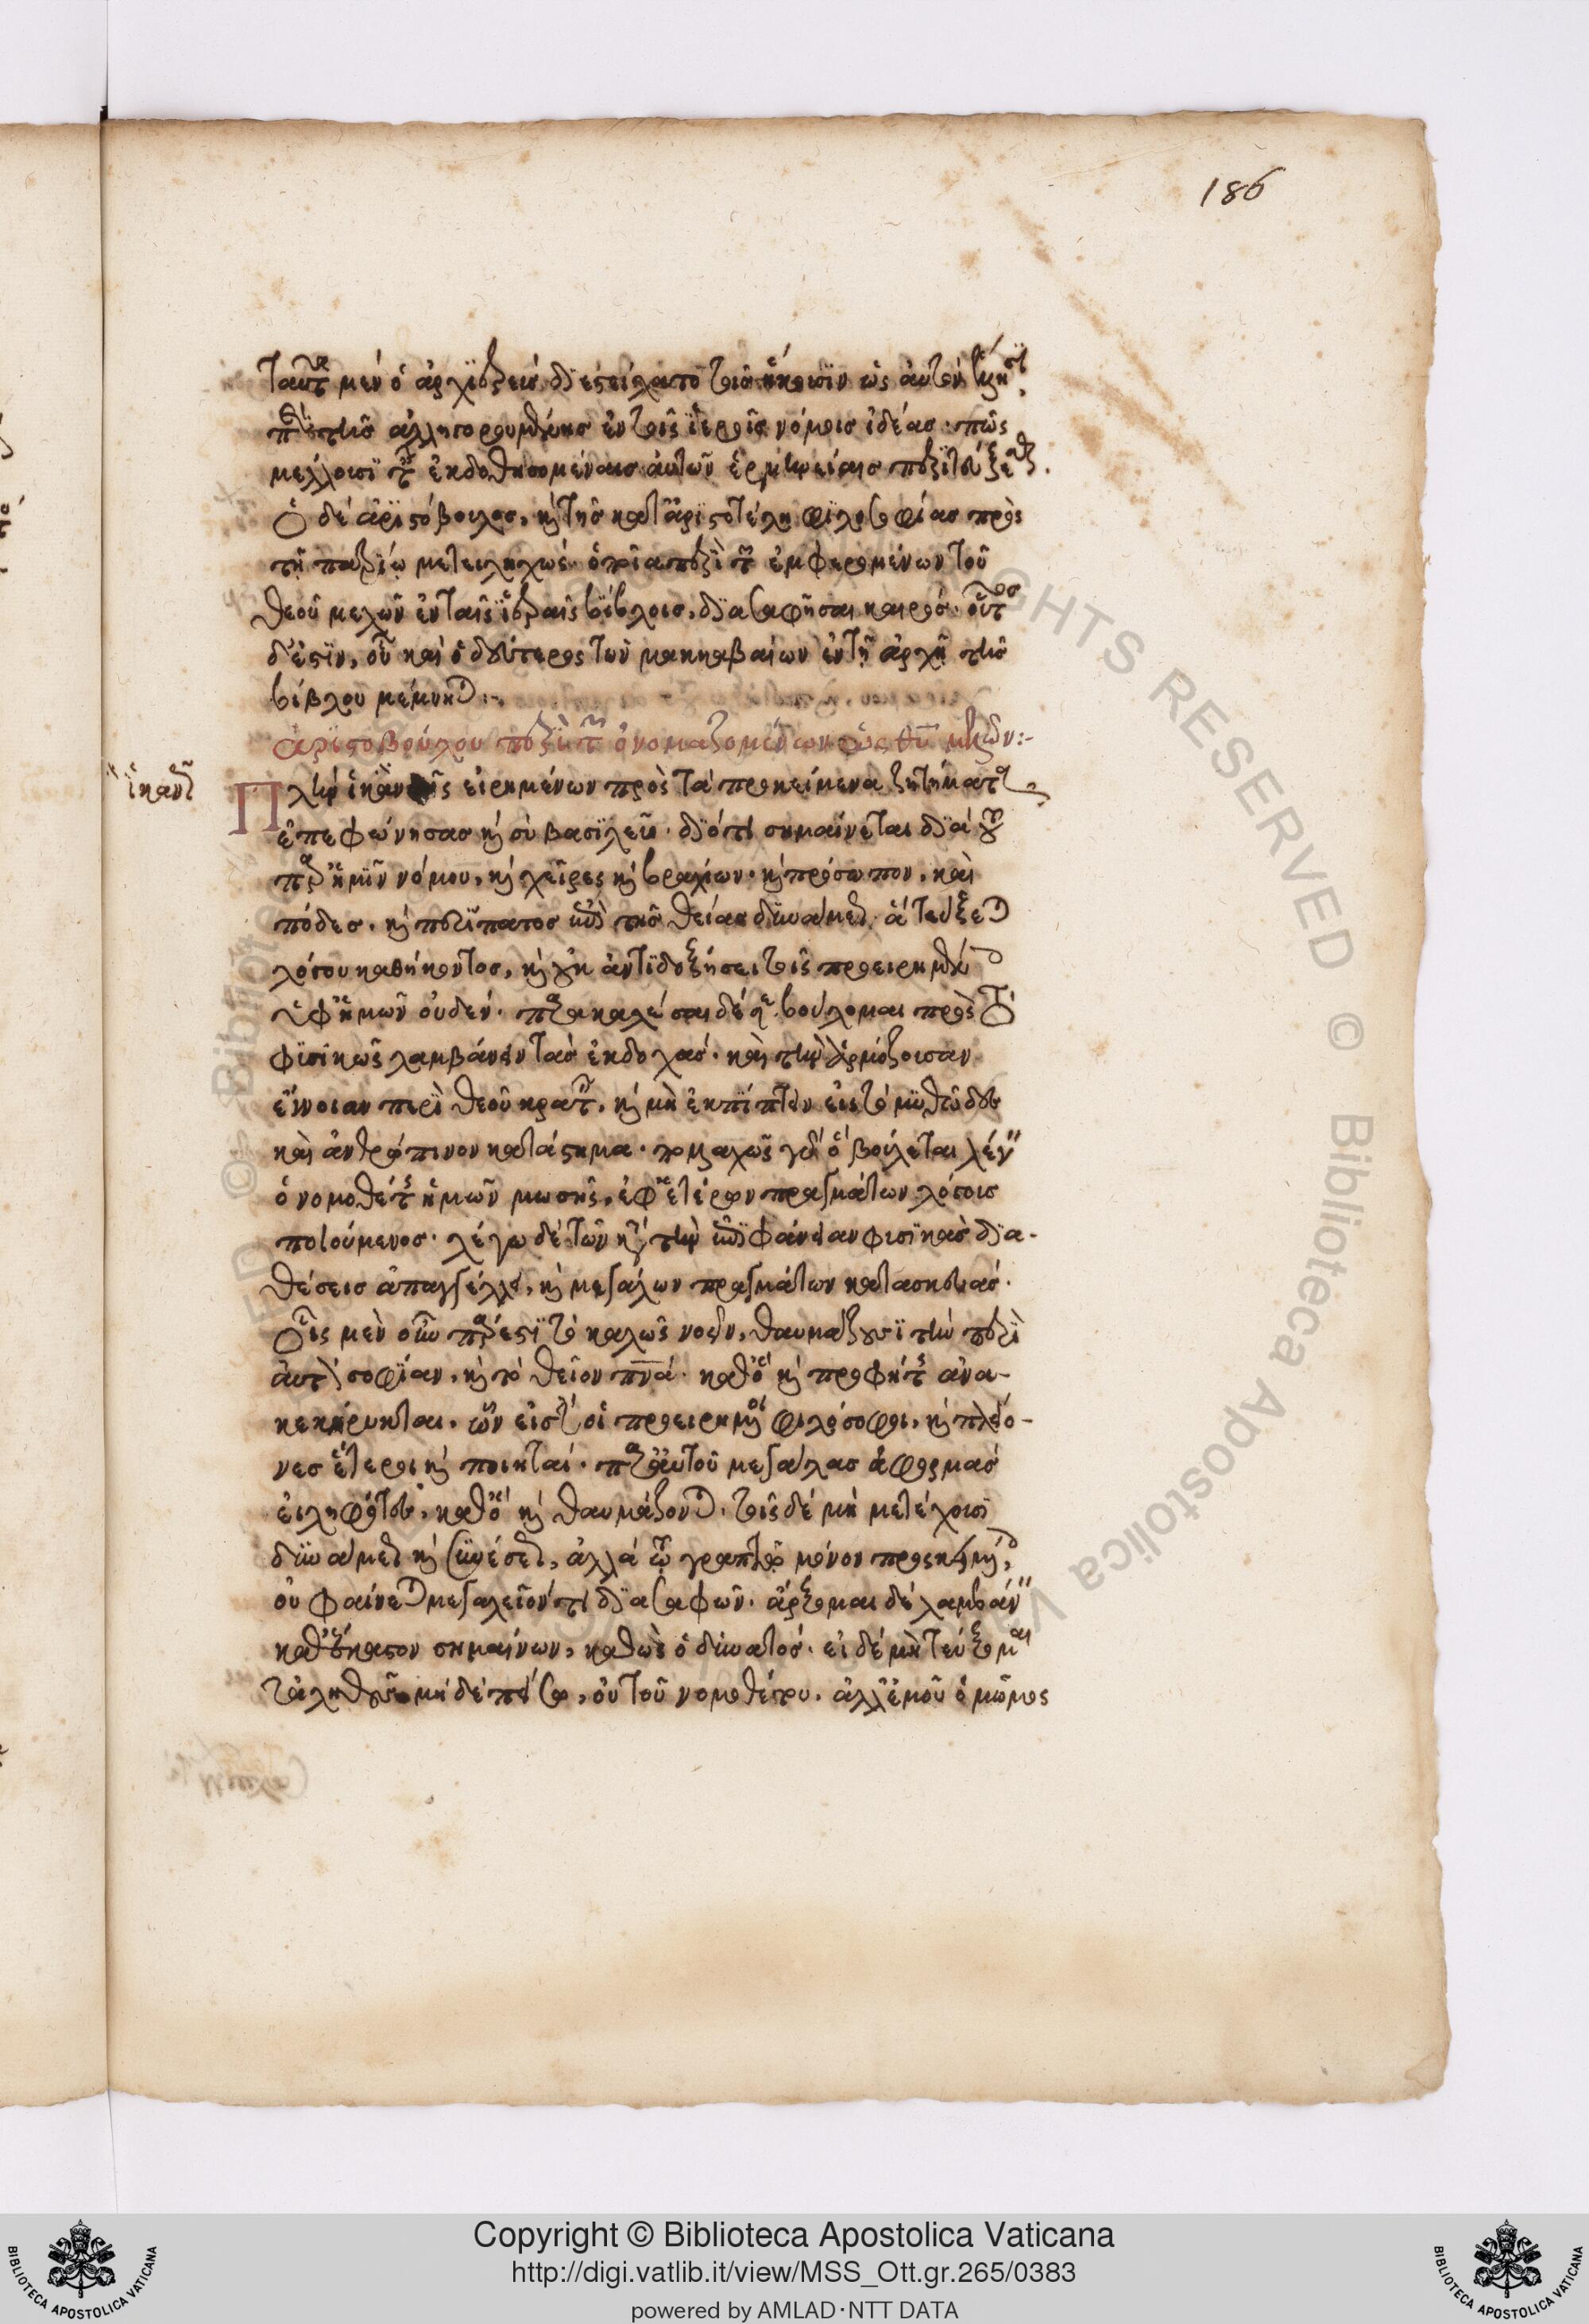 186
ταῦτα μὲν ὁ ἀρχιερεὺς διεστείλατο τοῖς ἥκουσιν ὡς αὐτὸν
τῆς ἀλληγορουμένης ἐν τοῖς ἱεροῖς νόμοις ἰδέας· πῶς
μέλλουσι τῶν ἐκδοθησομένων αὐτῶν ἑρμηνείαις περιτεύξεσθαι.
ὁ δὲ ἀριστόβουλος, καὶ τῆς κατ' ἀριστοτέλη φιλοσοφίας πρὸς
τῇ πατρίῳ μετειληχώς· ὁποῖα περὶ τῶν ἐμφερομένων τοῦ
θεοῦ μελῶν ἐν ταῖς ἱεραῖς βίβλοις, διασαφῆσαι καιρός· οὗτος
δ' ἐστὶν, οὗ καὶ ὁ δεύτερος τῶν μακκαβαίων ἐν τῇ ἀρχῇ τῆς
βίβλου μέμνηται:-
ἀριστοβούλου περὶ τῶν ὀνομαζομένων ὡς θῡ μελῶν:-
ἱκανῶς
πλὴν ἱκανῶς εἰρημένων πρὸς τὰ προκείμενα ζητήματα
ἐπεφώνησας καὶ σὺ βασιλεῦ· διότι σημαίνεται διὰ τοῦ
παρ' ἡμῖν νόμου, καὶ χεῖρες καὶ βραχίων· καὶ πρόσωπον, καὶ
πόδες· καὶ περίπατος ἐπὶ τῆς θείας δυνάμεως· ἃ τεύξεται
λόγου καθήκοντος, καὶ οὐκ ἀντιδοξήσει τοῖς προειρημένοις
ὑφ' ἡμῶν οὐδέν· παρακαλέσαι δέ σε βούλομαι πρὸς τὸ
φυσικῶς λαμβάνειν τὰς ἐκδοχάς· καὶ τὴν ἁρμόζουσαν
ἔννοιαν περὶ θεοῦ κρατεῖν, καὶ μὴ ἐκπίπτειν εἰς τὸ μυθῶδες
καὶ ἀνθρώπινον κατάστημα· πολλαχῶς γὰρ ὃ βούλεται λέγειν
ὁ νομοθέτης ἡμῶν μωσῆς, ἐφ' ἑτέρων πραγμάτων λόγους
ποιούμενος· λέγω δὲ τῶν κατὰ τὴν ἐπιφάνειαν φυσικὰς δια-
θέσεις ἀπαγγέλλει, καὶ μεγάλων πραγμάτων κατασκευάς·
οἷς μὲν οὖν πάρεστι τὸ καλῶς νοεῖν, θαυμάζουσι τὴν περὶ
αὐτὸν σοφίαν, καὶ τὸ θεῖον πν̄ᾱ· καθ' ὃ καὶ προφήτης ἀνα-
κεκήρυκται, ὧν εἰσιν οἱ προειρημένοι φιλόσοφοι, καὶ πλείο-
νες ἕτεροι καὶ ποιηταὶ· παρ' αὐτοῦ μεγάλας ἀφορμὰς
εἰληφότες, καθ' ὃ καὶ θαυμάζονται· τοῖς δὲ μὴ μετέχουσι
δυνάμεως καὶ συνέσεως, ἀλλὰ τῷ γραπτῷ μόνον προσκειμένοις,
οὐ φαίνεται μεγαλεῖόν τι διασαφῶν· ἄρξομαι δὲ λαμβάνειν
καθ' ἕκαστον σημαίνων, καθὼς ὁ δυνατός· εἰ δὲ μὴ τεύξομαι
μηδὲ πείσω, οὐ τοῦ νομοθέτου, ἀλλ' ἐμοῦ ὁ μῶμος
Copyright © Biblioteca Apostolica Vaticana
http://digi.vatlib.it/view/MSS_Ott.gr.265/0383
powered by AMLAD·NTT DATA